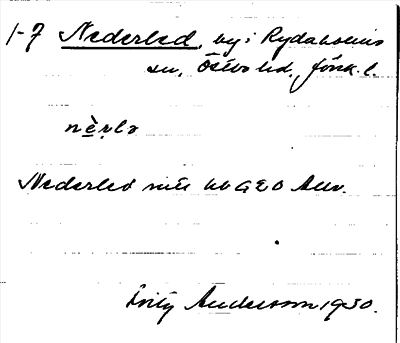 1-7 Nederled, by i Rydaholms
sn, Östbo hd, Jönk. l.
nèrlə
Nederled
Fritz Andersson 1930.